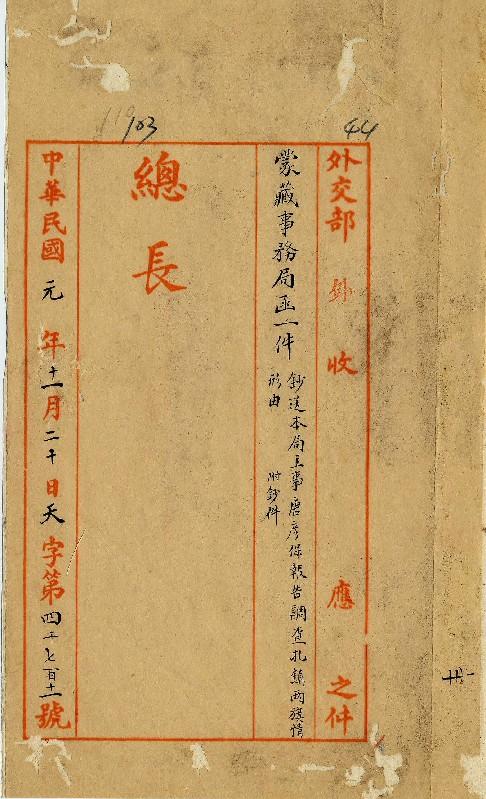 44
103
外交部 外 收 應 之件
蒙藏事務局函一件
鈔送本局主事唐彥保報告調查扎鎮兩旗情
形由 附鈔件
總長
中華民國元年十一月二十日天字第四千七百十一號